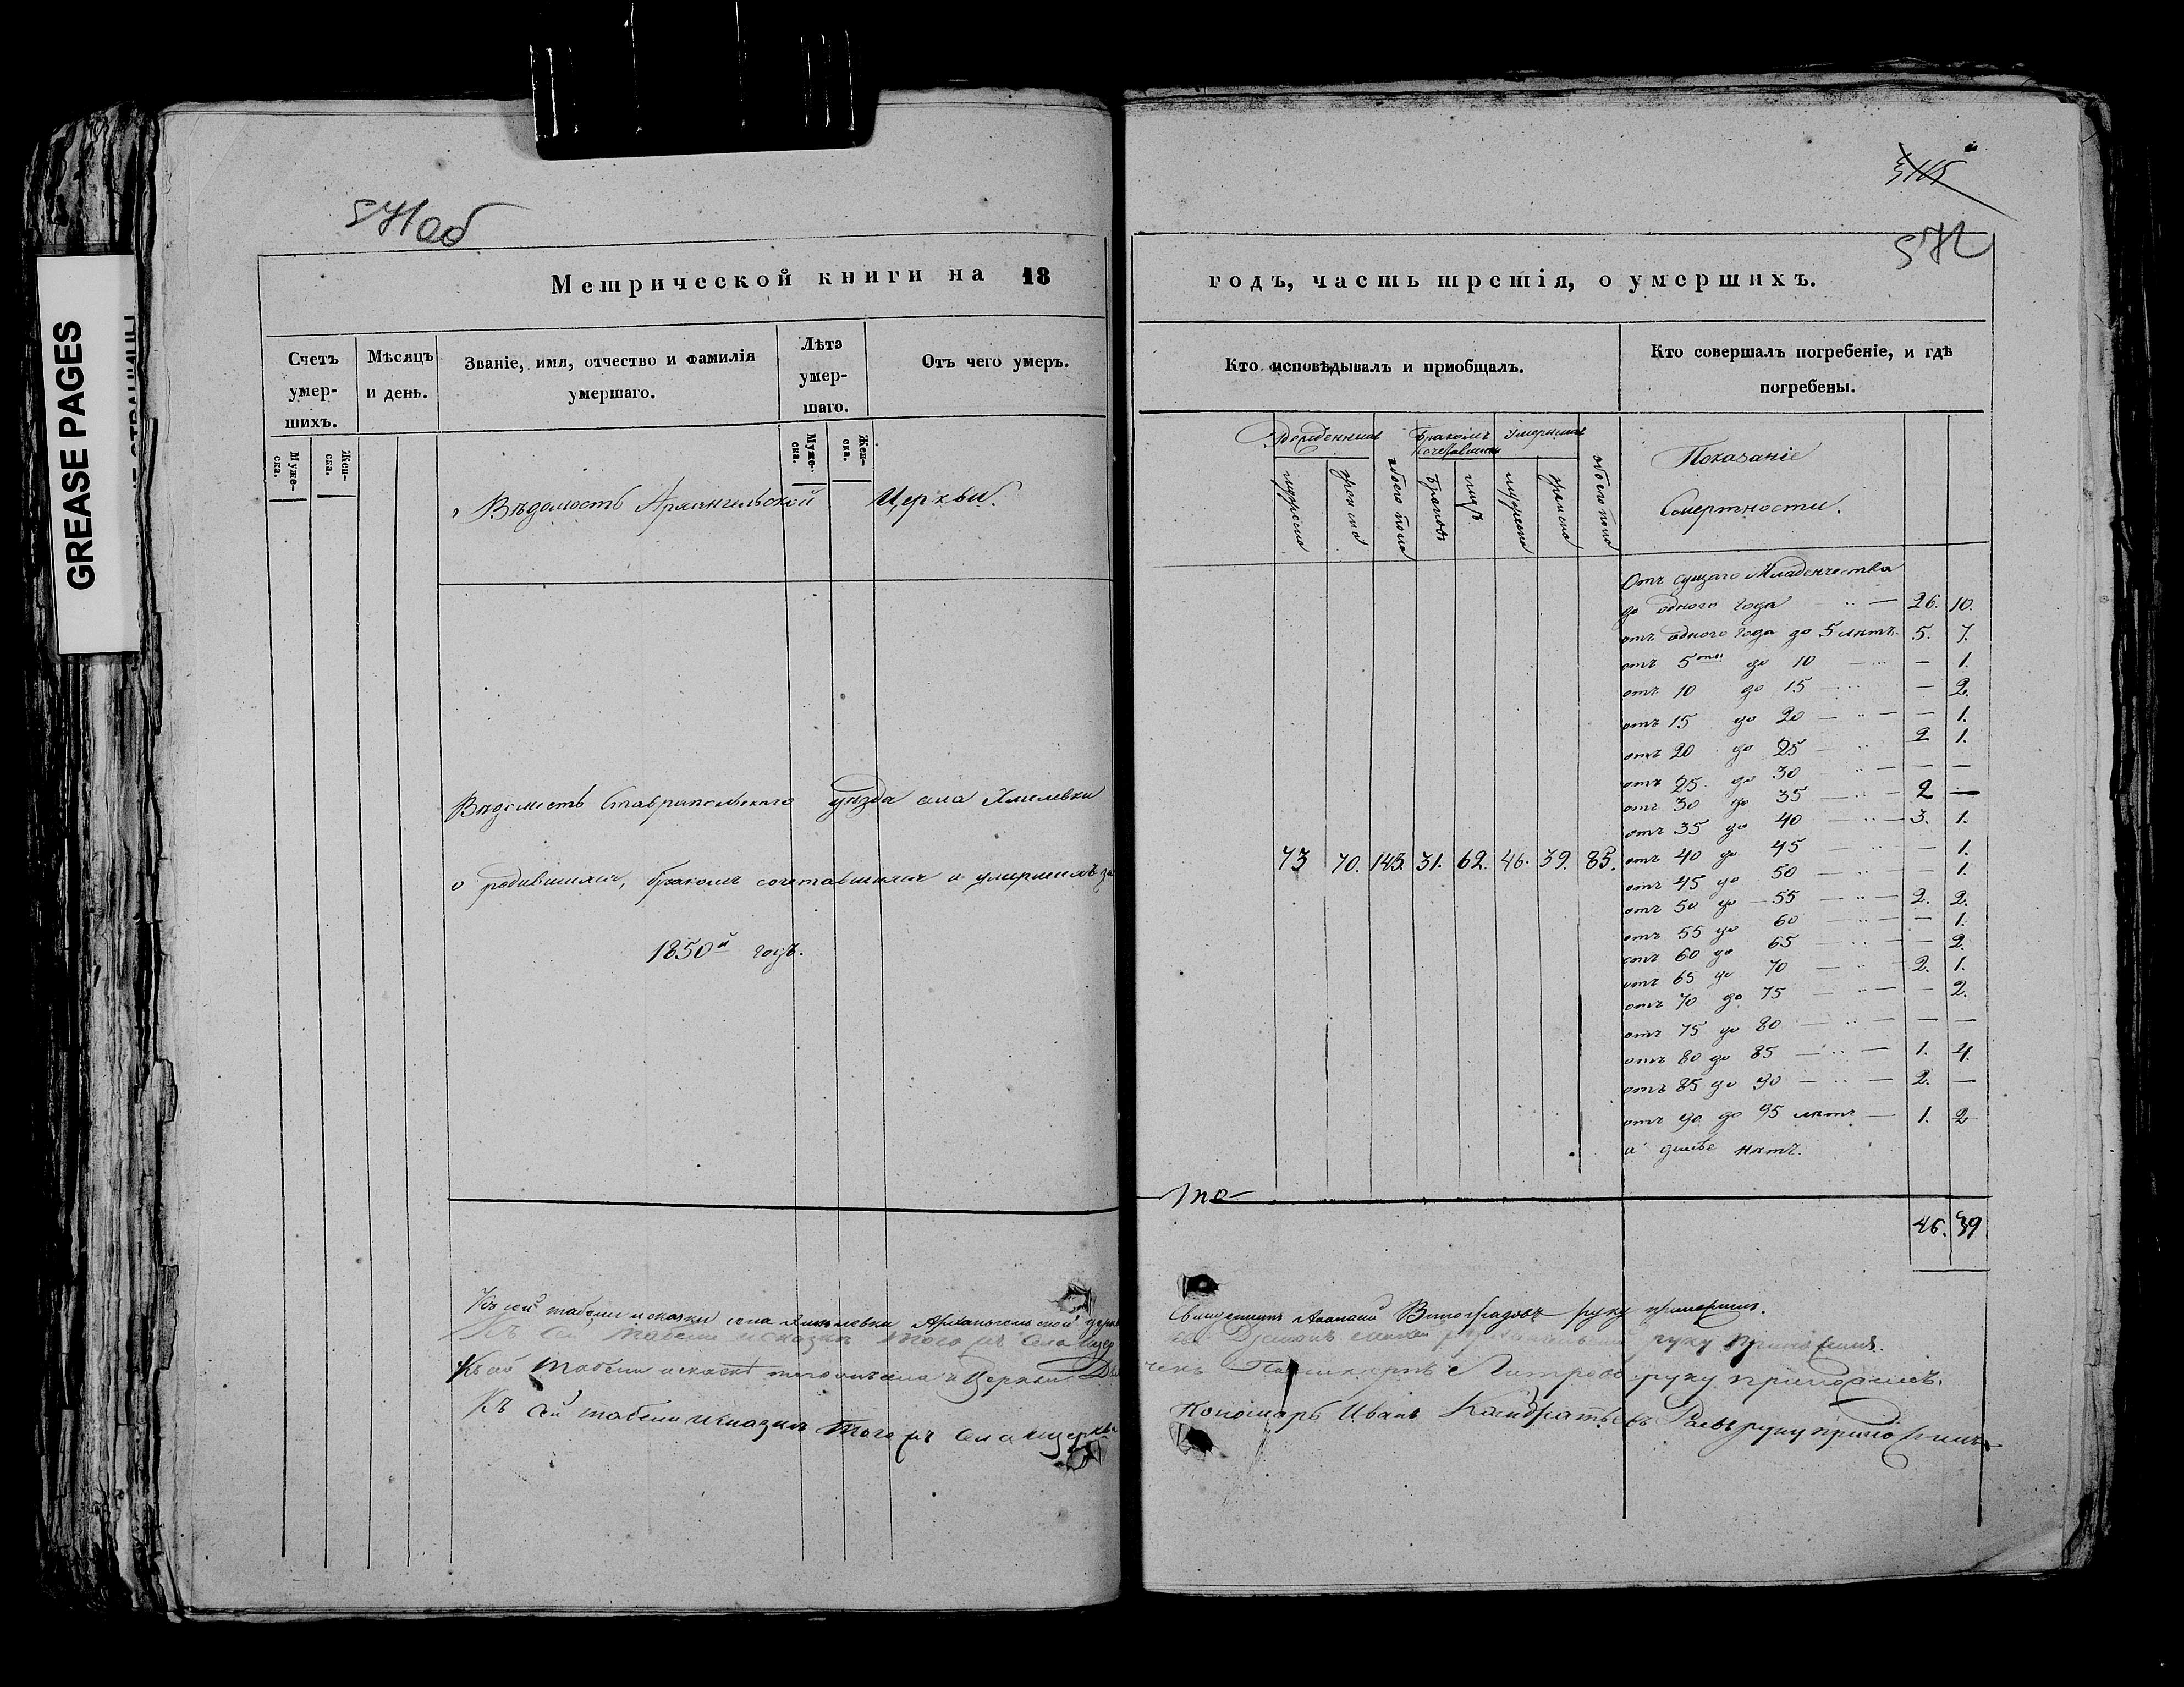 GREASE PAGES
571об
572
Метрической книги на 18
годъ, часть третія, о умершихъ.
Счетъ умер-шихъ.
Мѣсяцъ и день.
Званіе, имя, отчество и фамилія умершаго.
Лѣта умер-шаго.
Отъ чего умеръ.
Кто исповѣдывалъ и приобщалъ.
Кто совершалъ погребеніе, и гдѣ погребены.
Муже-ска.
Жен-ска.
Муже-ска.
Жен-ска.
Вѣдомость Архангельской Церкви.
Вѣдомость Ставропольскаго уѣзда села Хмелевки
о родившихся, бракомъ сочетавшихся и умершихъ за
1850й годъ.
Рожденныхъ
Бракомъ
Умершихъ
мужеска
женска
обоего пола
Браковъ
лицъ
мужеска
женска
обоего пола
Показаніе
Смертности.
73 70. 143. 31. 62. 46. 39. 85.
Отъ сущаго Младенчества
до одного года 26. 10.
отъ одного года до 5 лѣтъ. 5. 7.
отъ 5ти до 10 — 1.
отъ 10 до 15 — 2.
отъ 15 до 20 — 1.
отъ 20 до 25 2 1.
отъ 25 до 30 — —
отъ 30 до 35 2 —
отъ 35 до 40 3. 1.
отъ 40 до 45 — 1.
отъ 45 до 50 — 1.
отъ 50 до 55 2. 2.
отъ 55 до 60 — 1.
отъ 60 до 65 — 2.
отъ 65 до 70 2. 1.
отъ 70 до 75 — 2.
отъ 75 до 80 — —
отъ 80 до 85 1. 4.
отъ 85 до 90 2. —
отъ 90 до 95 лѣтъ 1. 2
и далѣе нѣтъ.
46. 39
Къ сей табели и сказки села Хмелевки Архангельской церк
Священникъ Виноградовъ руку приложилъ.
Къ сей табели и сказки того жъ села
Дьяконъ руку приложилъ.
Къ сей табели и сказкѣ того жъ села и Церкви
Петровъ руку приложилъ.
Къ сей табели и сказки того жъ села и церкви
Пономарь Иванъ Кандратьевъ руку приложилъ